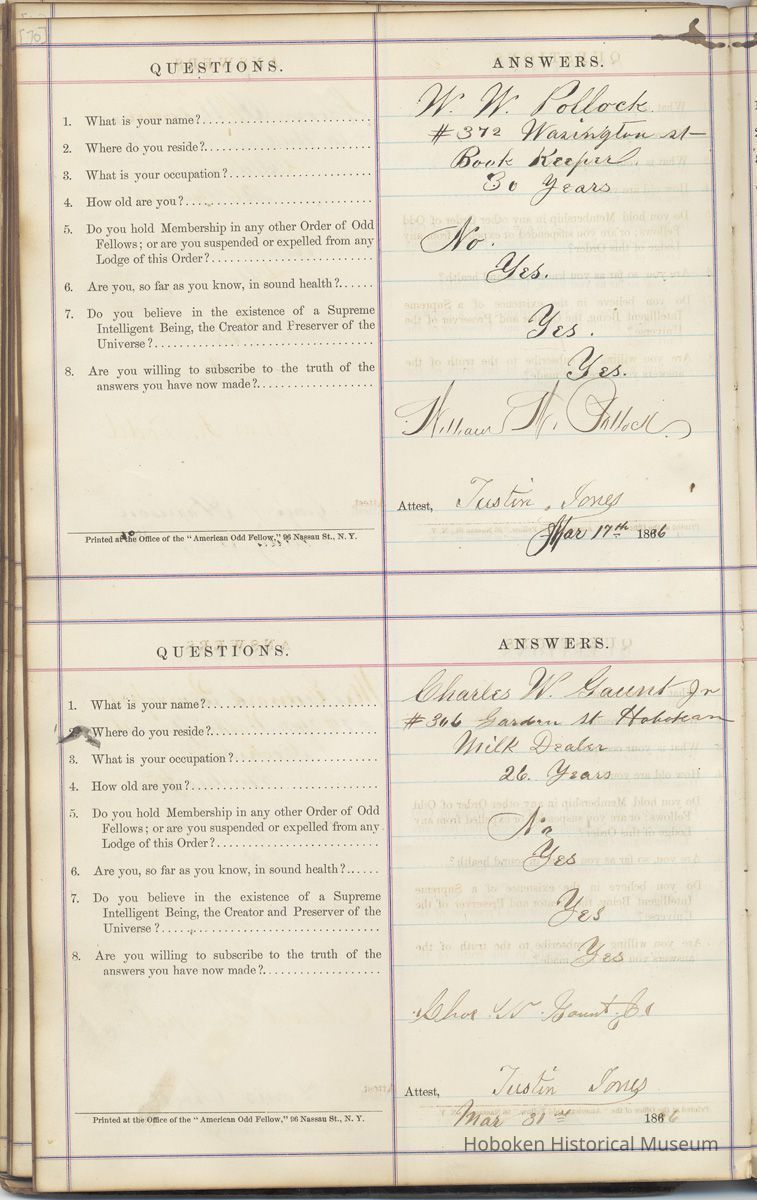 [70]
QUESTIONS.
ANSWERS.
1. What is your name?
W. W. Pollock.
2. Where do you reside?
# 372 Wasington st
3. What is your occupation?
Book Keeper
4. How old are you?
30 Years
5. Do you hold Membership in any other Order of Odd
Fellows; or are you suspended or expelled from any
Lodge of this Order?
No.
6. Are you, so far as you know, in sound health?
Yes.
7. Do you believe in the existence of a Supreme
Intelligent Being, the Creator and Preserver of the
Universe?
Yes.
8. Are you willing to subscribe to the truth of the
answers you have now made?
Yes.
William W. Pollock
Attest, Justin Jones
Printed at the Office of the "American Odd Fellow," 96 Nassau St., N. Y.
Mar 17th 1866
QUESTIONS.
ANSWERS.
1. What is your name?
Charles W. Gaunt Jr
2. Where do you reside?
# 306 Garden st Hoboken
3. What is your occupation?
Milk Dealer
4. How old are you?
26. Years
5. Do you hold Membership in any other Order of Odd
Fellows; or are you suspended or expelled from any
Lodge of this Order?
No
6. Are you, so far as you know, in sound health?
Yes
7. Do you believe in the existence of a Supreme
Intelligent Being, the Creator and Preserver of the
Universe?
Yes
8. Are you willing to subscribe to the truth of the
answers you have now made?
Yes
Chas W. Gaunt Jr
Attest, Justin Jones
Printed at the Office of the "American Odd Fellow," 96 Nassau St., N. Y.
Mar 31st 1866
Hoboken Historical Museum